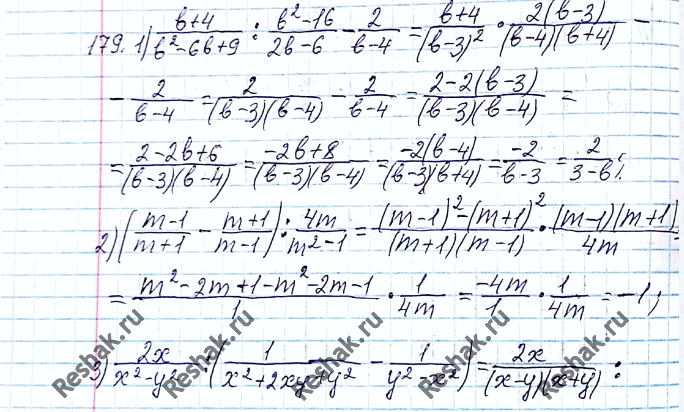 179. 1) (b+4)/(b²-6b+9) : (b²-16)/(2b-6) - 2/(b-4) = (b+4)/(b-3)² · 2(b-3)/((b-4)(b+4)) -
- 2/(b-4) = 2/((b-3)(b-4)) - 2/(b-4) = (2-2(b-3))/((b-3)(b-4)) =
= (2-2b+6)/((b-3)(b-4)) = (-2b+8)/((b-3)(b-4)) = (-2(b-4))/((b-3)(b+4)) = (-2)/(b-3) = 2/(3-b);
2) ((m-1)/(m+1) - (m+1)/(m-1)) : 4m/(m²-1) = ((m-1)²-(m+1)²)/((m+1)(m-1)) · ((m-1)(m+1))/4m =
= (m²-2m+1-m²-2m-1)/1 · 1/4m = (-4m)/1 · 1/4m = -1;
3) 2x/(x²-y²) : (1/(x²+2xy+y²) - 1/(y²-x²)) = 2x/((x-y)(x+y)) :
Reshak.ru Reshak.ru Reshak.ru Reshak.ru